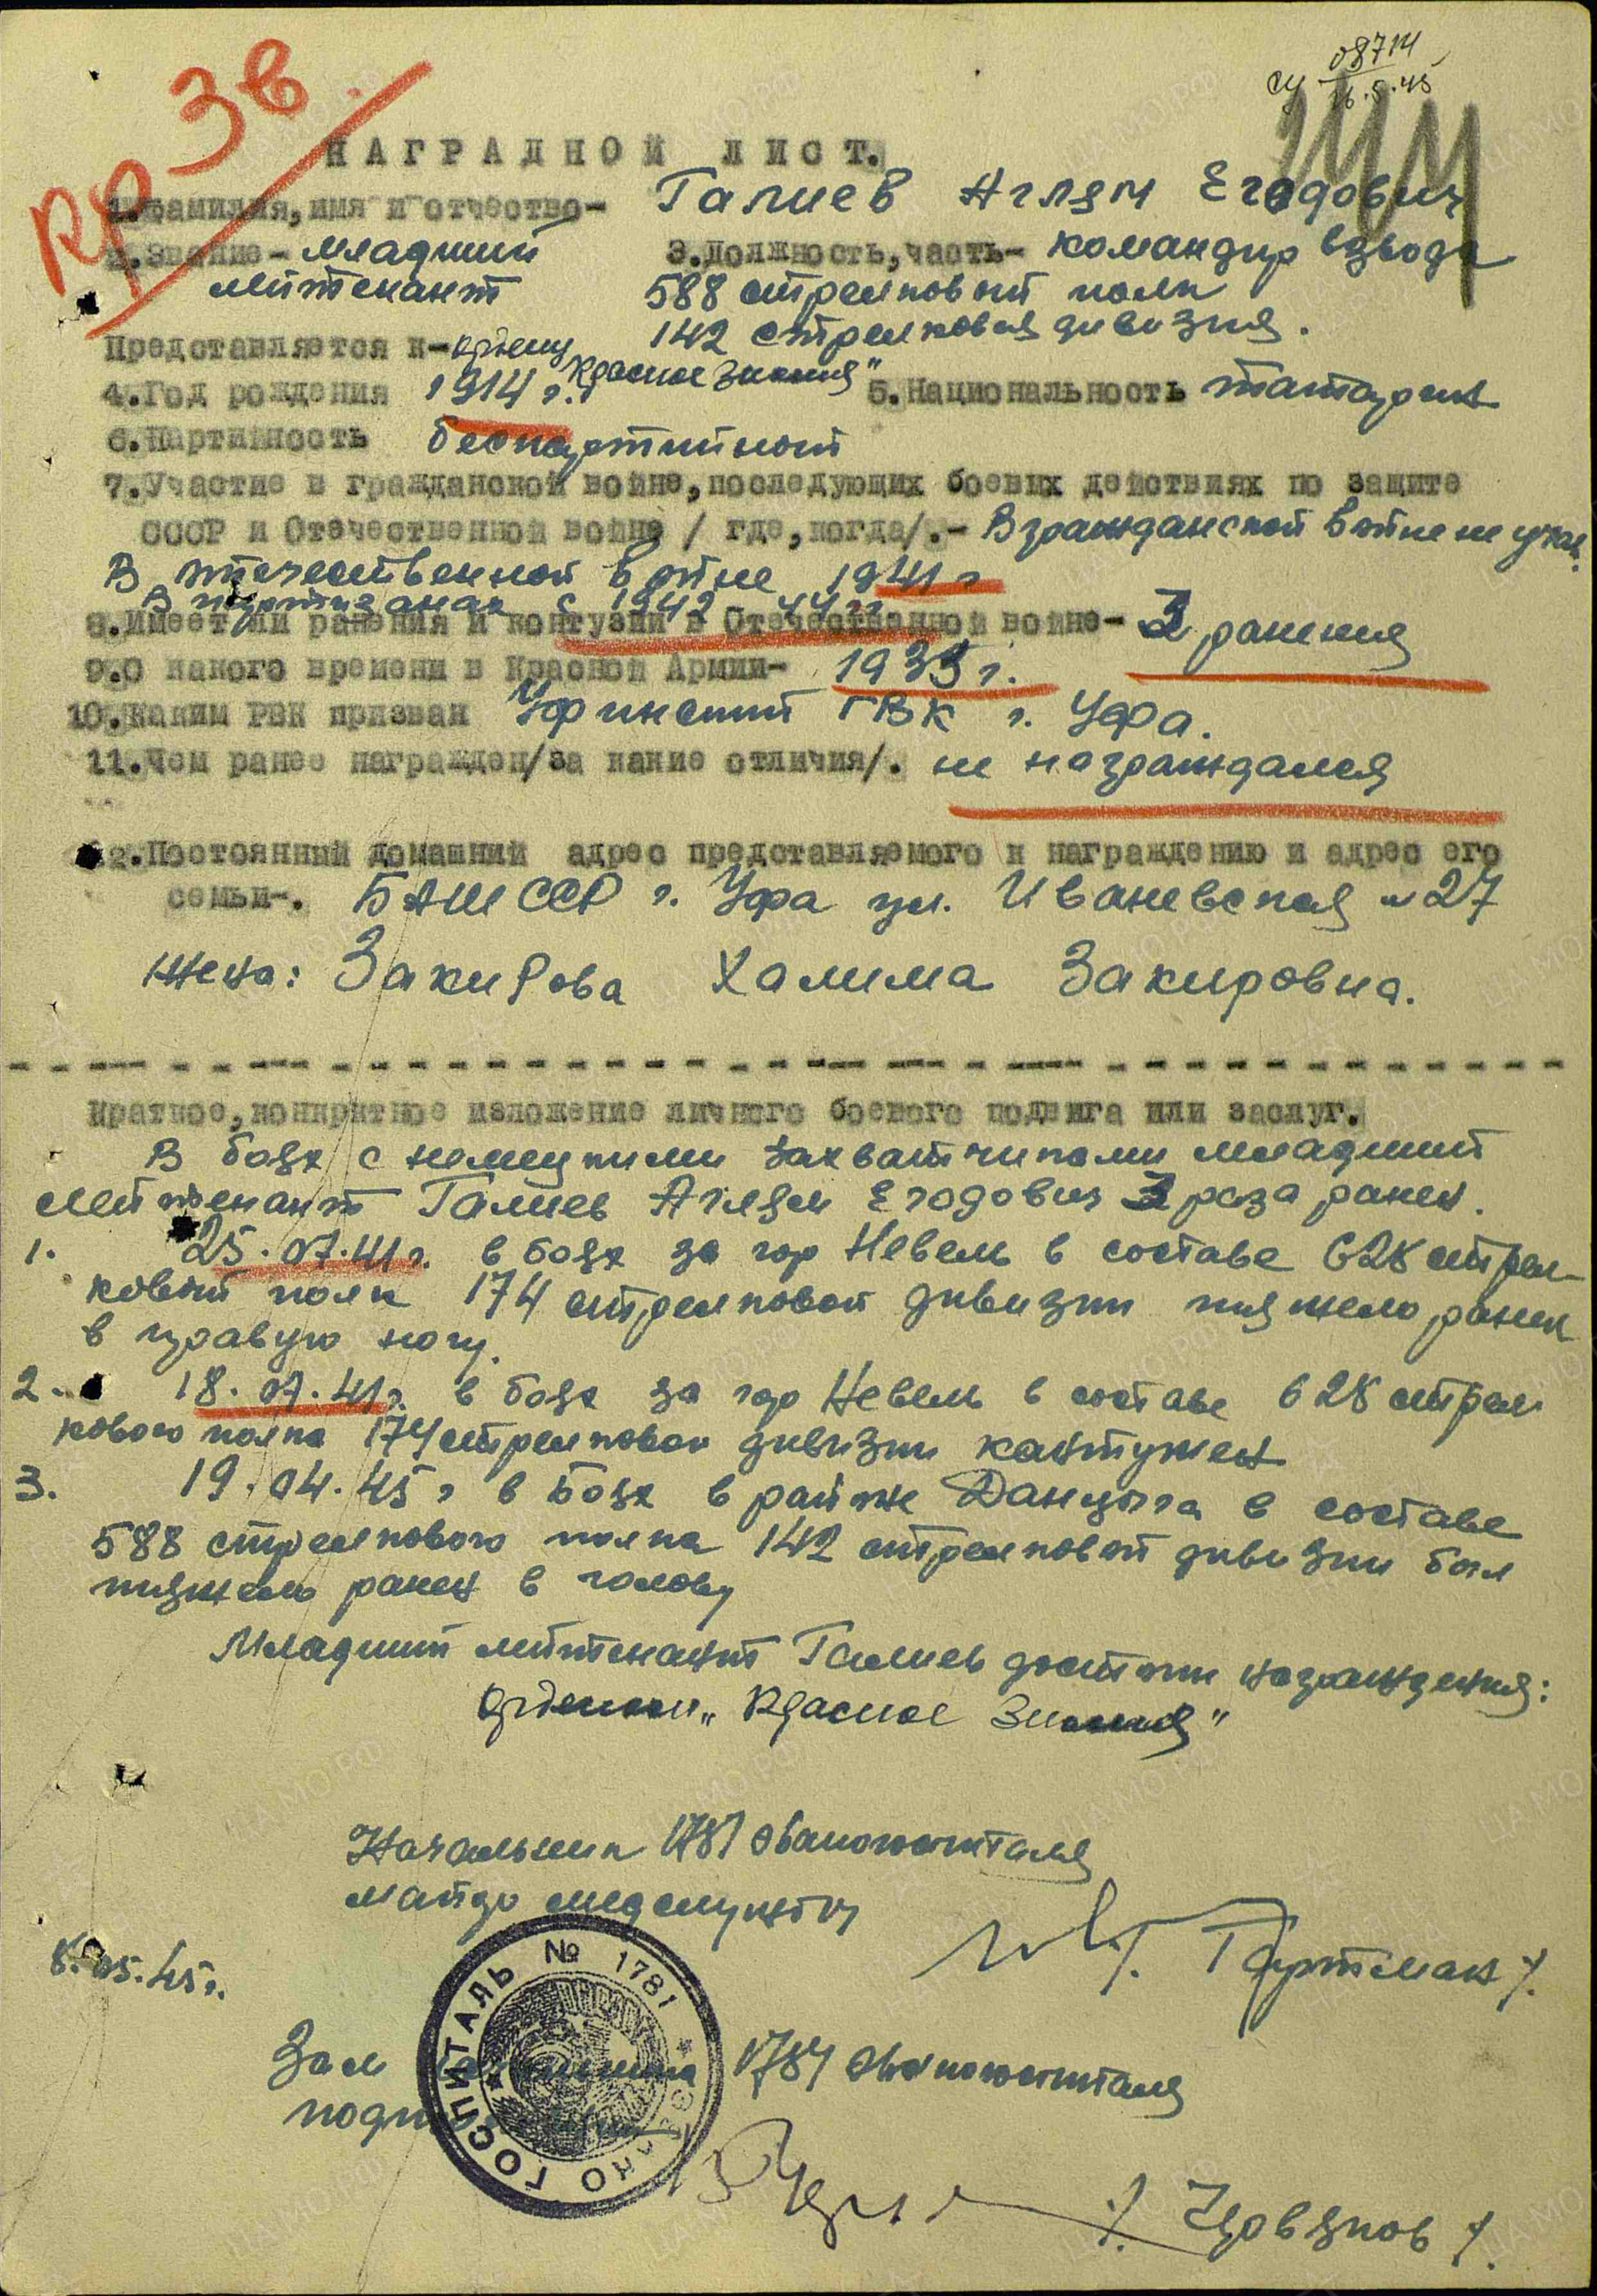 Зв.
НАГРАДНОЙ ЛИСТ.
1.Фамилия, имя и отчество- Галиев Аглям Егодович
2.Звание- младший 3.Должность, часть- командир взвода
лейтенант 588 стрелковый полк
142 стрелковая дивизия.
Представляется к- ордену
"Красное Знамя"
4.Год рождения 1914 г. 5.Национальность татарин
6.Партийность беспартийный
7.Участие в гражданской войне, последующих боевих действиях по защите
СССР и Отечественной войне / где, когда/.- В гражданской войне не учас.
В отечественной войне 1941 г
В партизанах с 1942 44 гг
8.Имеет ли ранения и контузии в Отечественной войне- 3 ранения
9.С какого времени в Красной Армии- 1935 г.
10.Каким РВК призван Уфинский ГВК г. Уфа.
11.Чем ранее награжден/за какие отличия/. не награждался
12.Постоянный домашний адрес представляемого к награждению и адрес его
семьи-. БАШССР г. Уфа ул. Иваневская №27
жена: Закирова Халима Закировна.
Краткое, конкритное изложение личного боевого подвига или заслуг.
В боях с немецкими захватчиками младший
лейтенант Галиев Аглям Егодович 3 раза ранен.
1. 25.07.41г. в боях за гор Невель в составе 628 стрел-
ковый полк 174 стрелковой дивизии тяжело ранен
в правую ногу.
2. 18.07.41г. в боях за гор Невель в составе 628 стрел
кового полка 174 стрелковой дивизии кантужен
3. 19.04.45 г в боях в районе Данцыга в составе
588 стрелкового полка 142 стрелковой дивизии был
тяжело ранен в голову
Младший лейтенант Галиев достоин награждения:
орденом „Красное Знамя"
Начальник 1781 эвакогоспиталя
майор медслужбы
/. Гартман /.
8.05.45г.
ГОСПИТАЛЬ № 1781
Зам начальника 1781 эвакогоспиталя